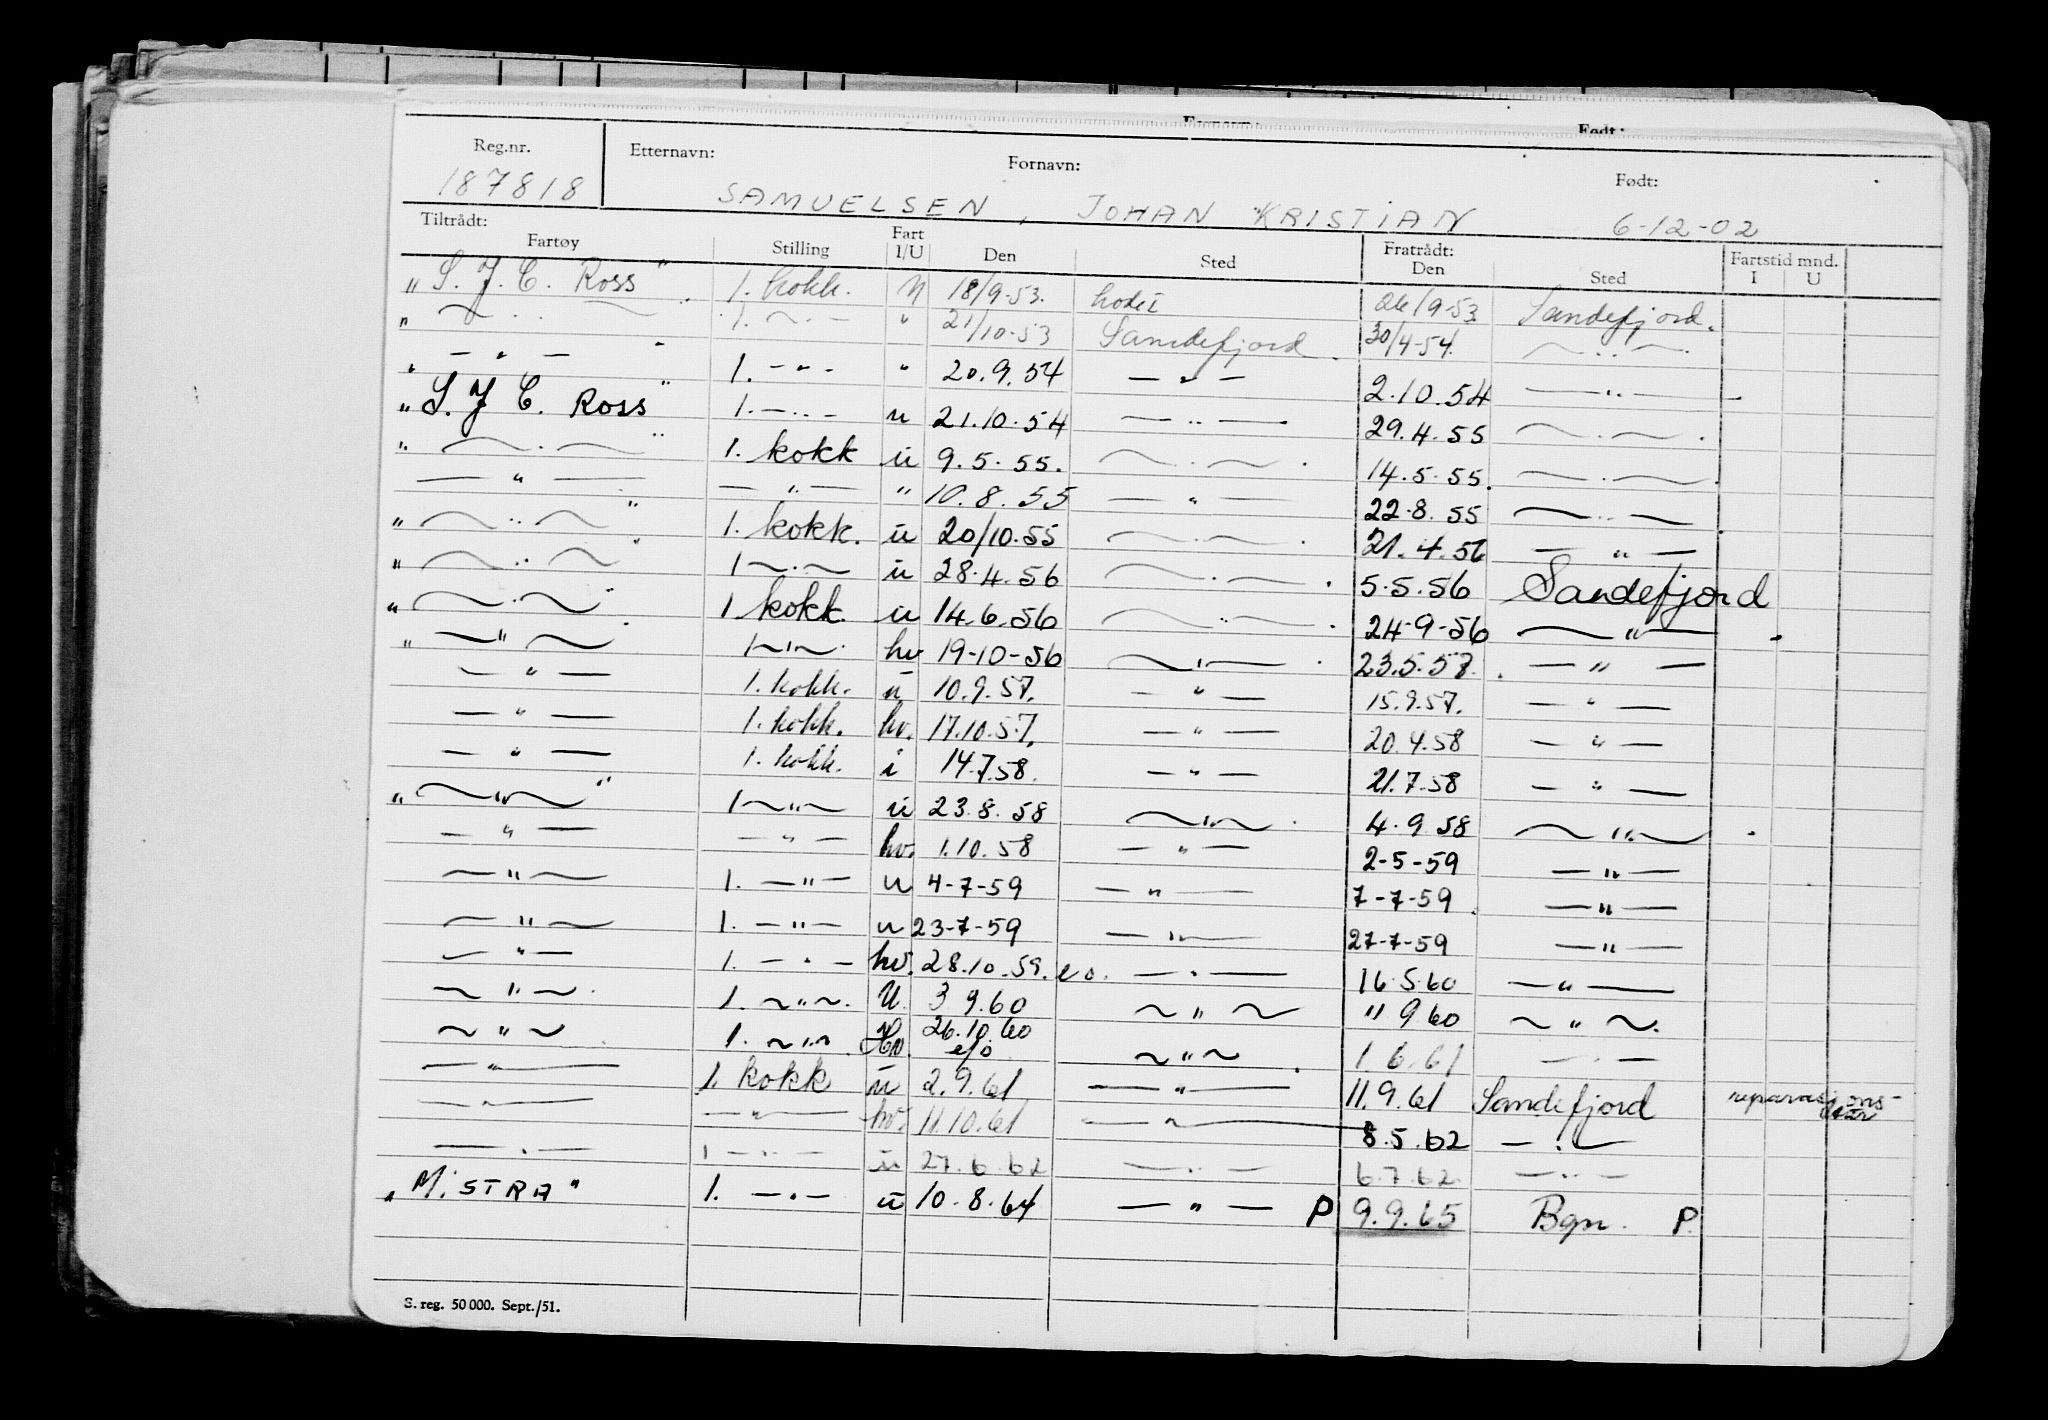 Reg.nr. Etternavn: Fornavn: Født:
187818 SAMUELSEN, JOHAN KRISTIAN 6-12-02
Tiltrådt: Fratrådt:
Fartøy Stilling Fart I/U Den Sted Den Sted Fartstid mnd. I U
"S. J. C. Ross" 1. kokk. 18/9-53. 26/9-53 Sandefjord.
" — " — 1. — " — " 21/10-53 Sandefjord. 30/4-54. — " —
" — " — " 1. — " — " 20.9.54 — " — 2.10.54 — " —
"S. J C. Ross" 1. — " — u 21.10.54 — " — 29.4.55 — " —
" — " — " 1. kokk u 9.5.55. — " — 14.5.55. — " —
— " — — " — " 10.8.55 — " — 22.8.55 — " —
" — " — " 1. kokk. u 20/10.55 — " — 21.4.56 — " —
" — " — " 1 — " — u 28.4.56 — " — 5.5.56 Sandefjord
" — " — " 1 kokk. u 14.6.56 — " — 24-9-56 — " —
" — " — 1 — " — hv 19-10-56 — " — 23.5.57. — " —
— " — 1. kokk. u 10.9.57. — " — 15.9.57. — " —
— " — 1. kokk. hv. 17.10.57. — " — 20.4.58 — " —
— " — 1. kokk. i 14.7.58. — " — 21.7.58 — " —
" — " — " 1 — " — u 23.8.58 — " — 4.9.58 — " —
— " — — " — hv. 1.10.58 — " — 2-5-59 — " —
— " — 1. — " — u 4-7-59 — " — 7-7-59 — " —
— " — 1. — " — u 23-7-59 — " — 27-7-59 — " —
— " — 1. — " — hv. 28.10.59. e o. — " — 16.5.60 — " —
— " — 1. — " — U. 3 9.60 — " — 11 9 60 — " —
— " — 1. — " — Hv. 26.10.60 e/o — " — 1 6.61 — " —
— " — 1. kokk u 2.9.61 — " — 11.9.61 Sandefjord reparasjons-
— " — — " — hv. 11.10.61 — " — 8.5.62 — " —
— " — 1 — " — u 27.6.62 — " — 6.7.62. — " —
"MISTRA" 1. — " — u 10.8.64 — " — P 9.9.65 Bgn. P.
S. reg. 50 000. Sept./51.